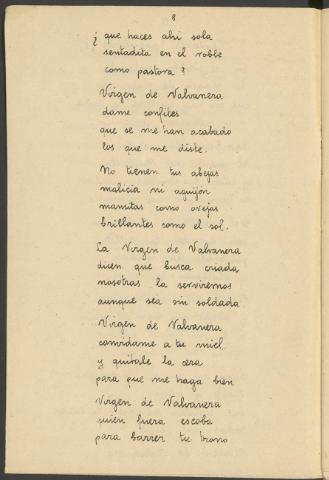 8
¿ que haces ahi sola
sentadita en el roble
como pastora ?
Virgen de Valvanera
dame confites
que se me han acabado
los que me diste.
No tienen tus abejas
malicia ni aguijón
mansitas como ovejas
brillantes como el sol.
La Virgen de Valvanera
dicen que busca criada
nosotras la serviremos
aunque sea sin soldada
Virgen de Valvanera
convidame a tu miel
y quitale la cera
para que me haga bien
Virgen de Valvanera
quien fuera escoba
para barrer tu trono